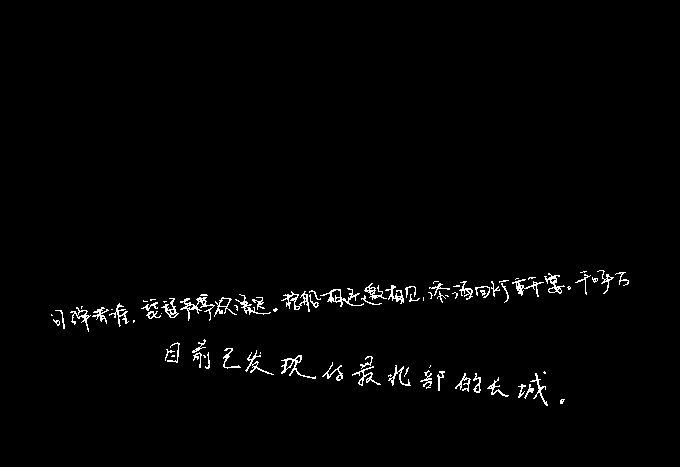 问弹者谁,琵琶声停欲语迟。移船相近邀相见,添酒回灯重开宴。千呼万
目前已发现的最北部的长城。